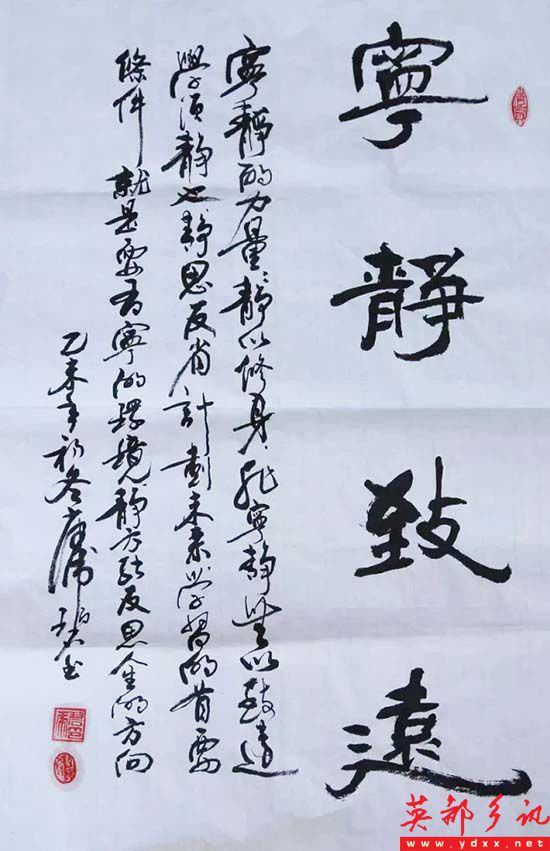 寧靜致遠
寧靜的力量：靜以修身，非寧靜無以致遠
學須靜也，靜思反省計劃未來，學習的首要
條件就是要有寧的環境，靜方能反思人生的方向
乙未年初冬 書
英都乡讯
www.ydxx.net